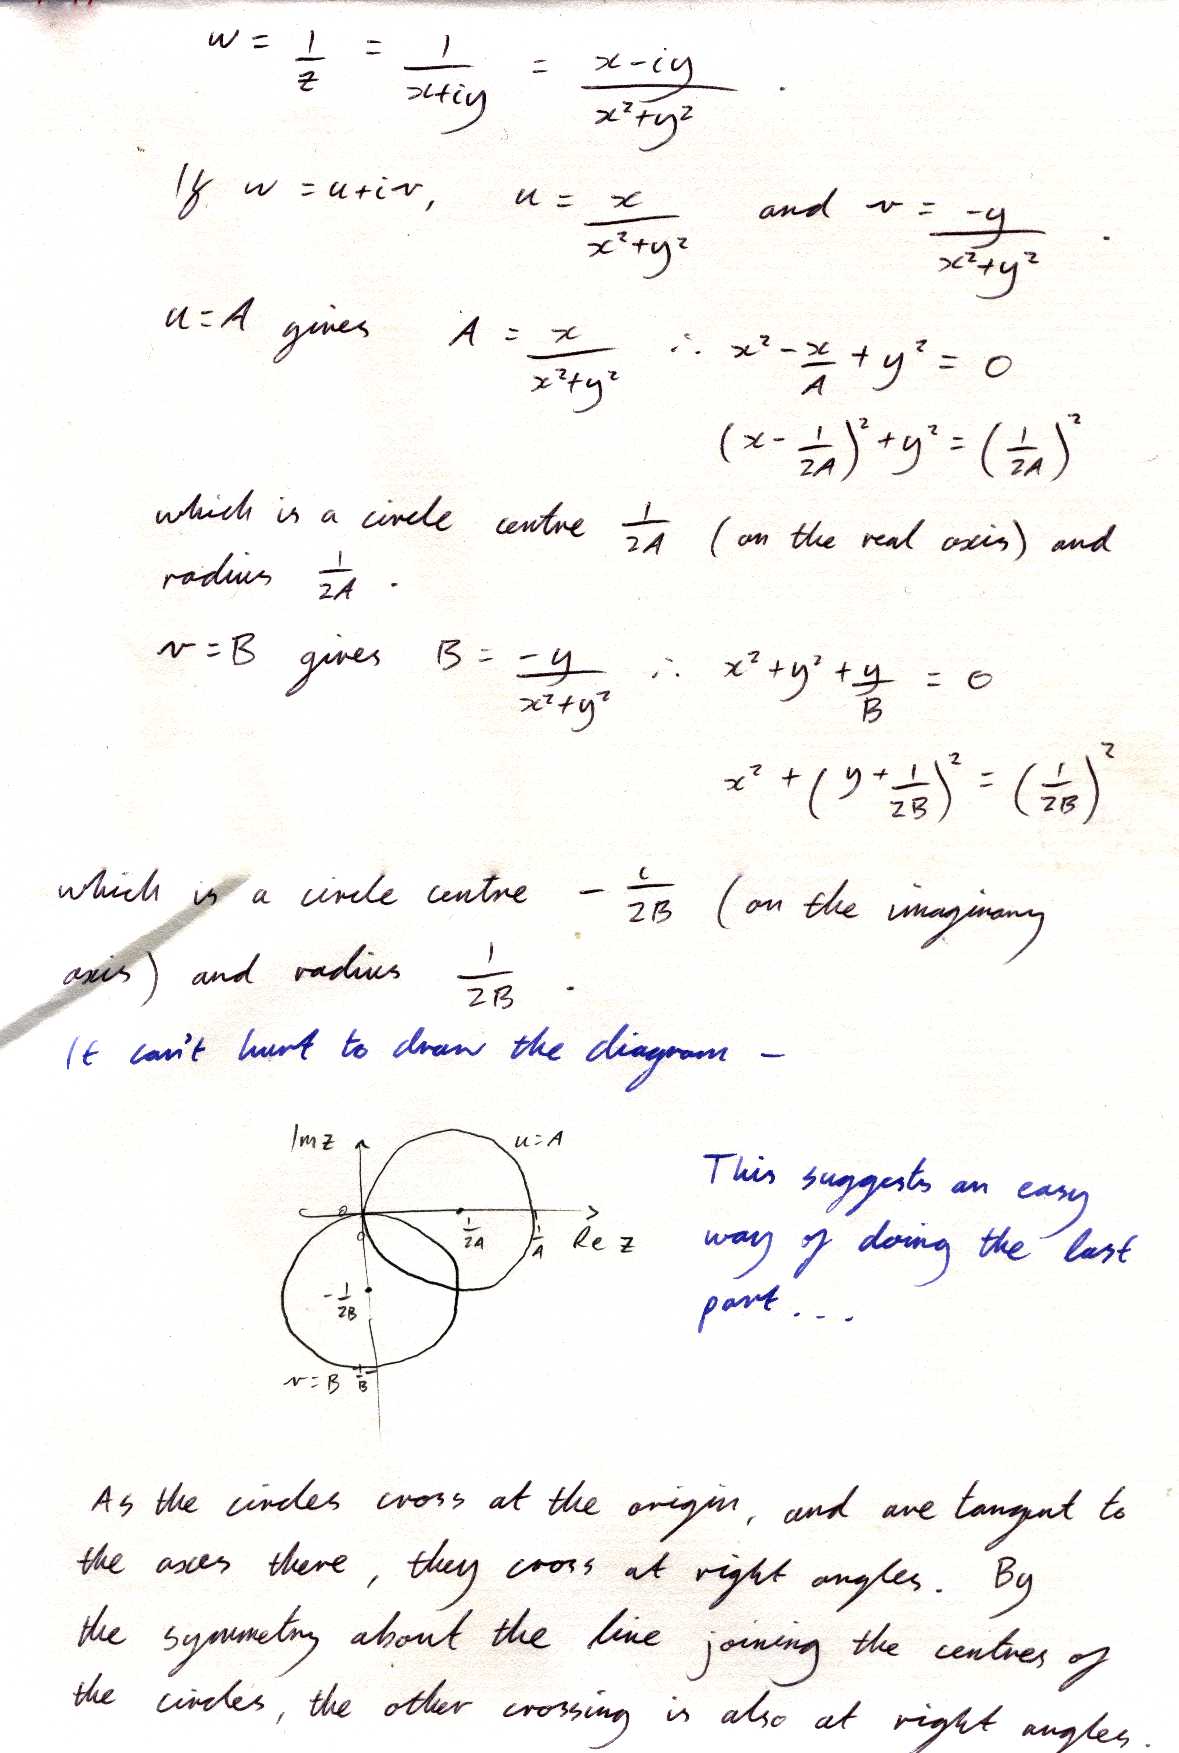 w = 1/z = 1/(x+iy) = (x-iy)/(x²+y²) .
If w = u+iv, u = x/(x²+y²) and v = -y/(x²+y²) .
u=A gives A = x/(x²+y²) ∴ x² - x/A + y² = 0
(x - 1/2A)² + y² = (1/2A)²
which is a circle centre 1/2A (on the real axis) and
radius 1/2A .
v=B gives B = -y/(x²+y²) ∴ x² + y² + y/B = 0
x² + (y + 1/2B)² = (1/2B)²
which is a circle centre - i/2B (on the imaginary
axis) and radius 1/2B .
It can't hurt to draw the diagram –
Im z u=A
0 1/2A 1/A Re z
-1/2B
v=B -1/B
This suggests an easy
way of doing the last
part . . .
As the circles cross at the origin, and are tangent to
the axes there, they cross at right angles. By
the symmetry about the line joining the centres of
the circles, the other crossing is also at right angles.